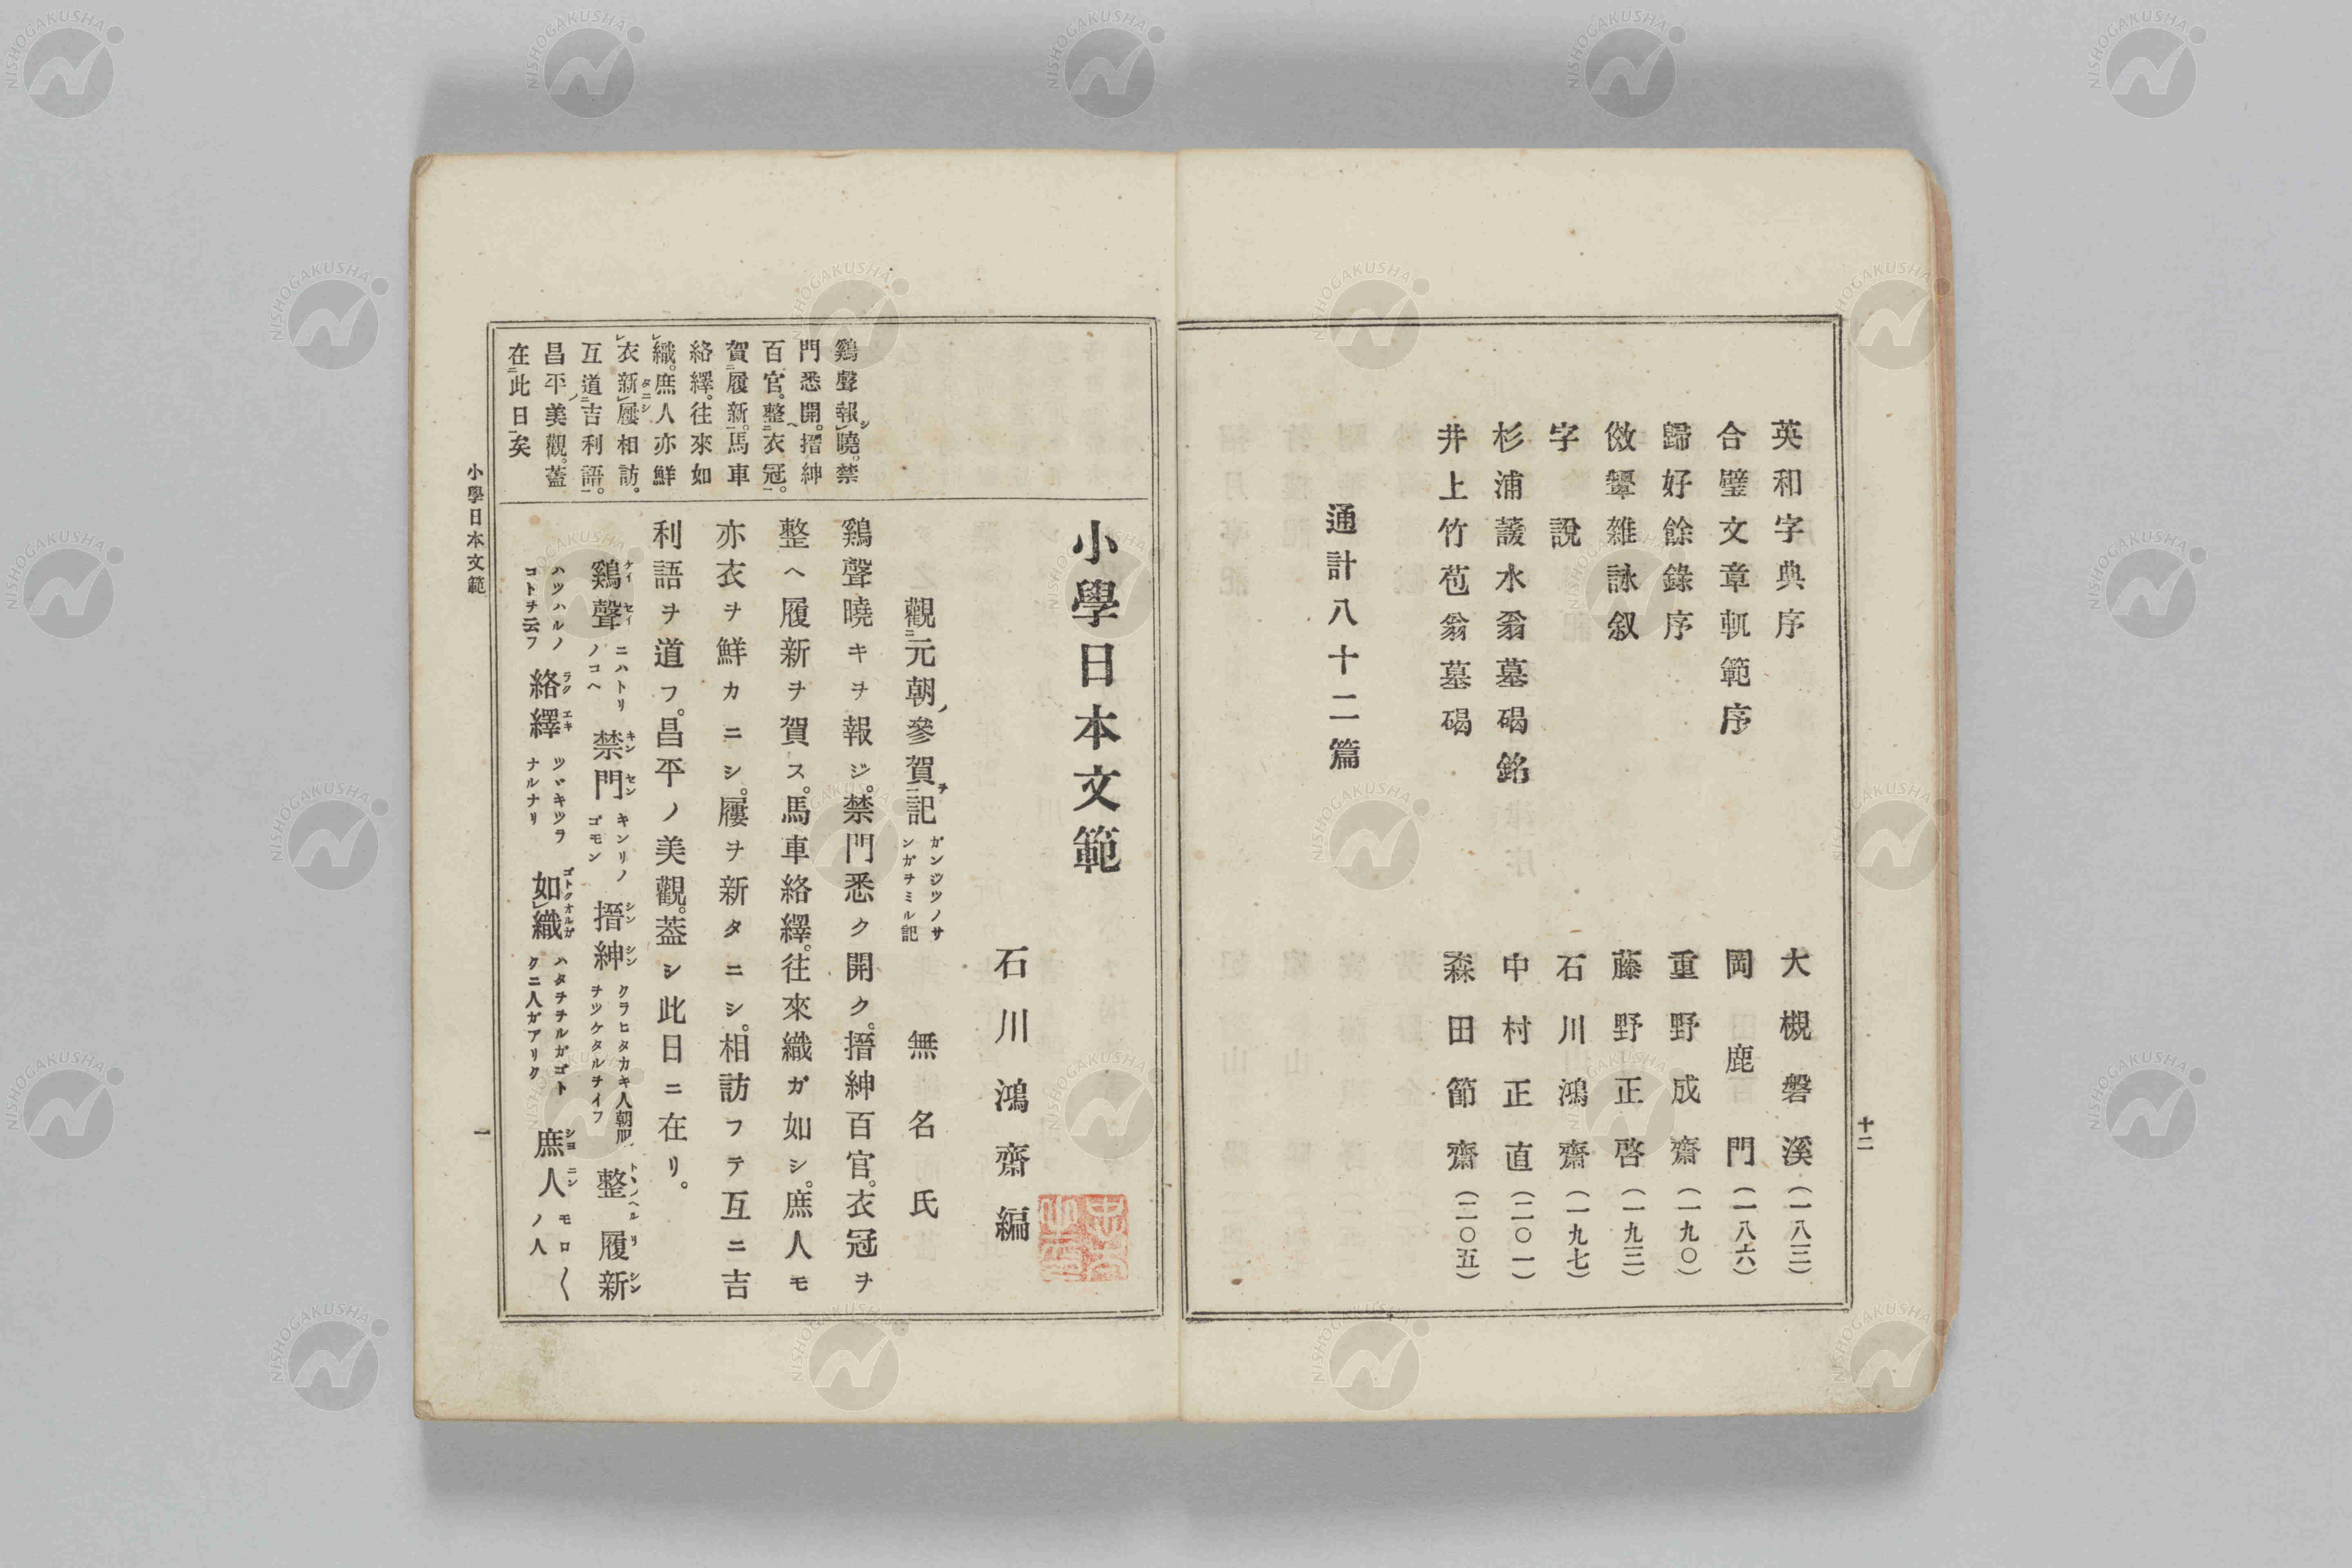 英和字典序 大槻磐溪(一八三)
合璧文章軌範序 岡鹿門(一八六)
歸好餘錄序 重野成齋(一九〇)
傚顰雜詠叙 藤野正啓(一九三)
字説 石川鴻齋(一九七)
杉浦蘐水翁墓碣銘 中村正直(二〇一)
井上竹苞翁墓碣 森田節齋(二〇五)
通計八十二篇
十二
小學日本文範
石川鴻齋編
觀元朝參賀記 ガンジツノサンガヲミル記 無名氏
鷄聲報曉。禁
門悉開。搢紳
百官。整衣冠。
賀履新。馬車
絡繹。往來如
織。庶人亦鮮
衣新屨相訪。
互道吉利語。
昌平美觀。蓋
在此日矣
鷄聲曉キヲ報ジ。禁門悉ク開ク。搢紳百官。衣冠ヲ
整ヘ履新ヲ賀ス。馬車絡繹。往來織ガ如シ。庶人モ
亦衣ヲ鮮カニシ。屨ヲ新タニシ。相訪フテ互ニ吉
利語ヲ道フ。昌平ノ美觀。蓋シ此日ニ在リ。
鷄聲 ケイセイ ニハトリノコヘ 禁門 キンリノゴモン 搢紳 シンシン クラヒタカキ人朝服ヲツケタルヲイフ 整 トヽノヘル 履新 リシン
ハツハルノコトヲ云フ 絡繹 ラクエキ ツヾキツラナルナリ 如織 ゴトクオルガ ハタヲヲルガゴトクニ人ガアリク 庶人 シヨニン モロ〱ノ人
小學日本文範
一
NISHOGAKUSHA